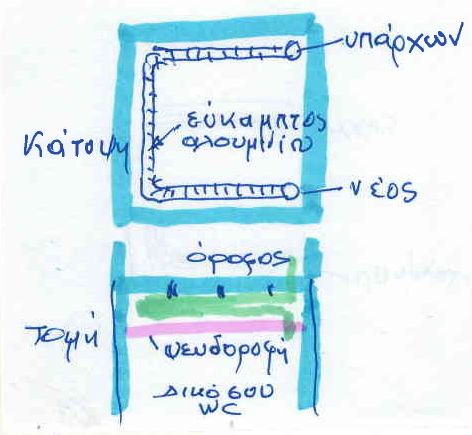 υπάρχων
Κάτοψη
εύκαμπτος
αλουμινίου
νέος
όροφος
τομή
ψευδοροφή
Δικό σου
WC